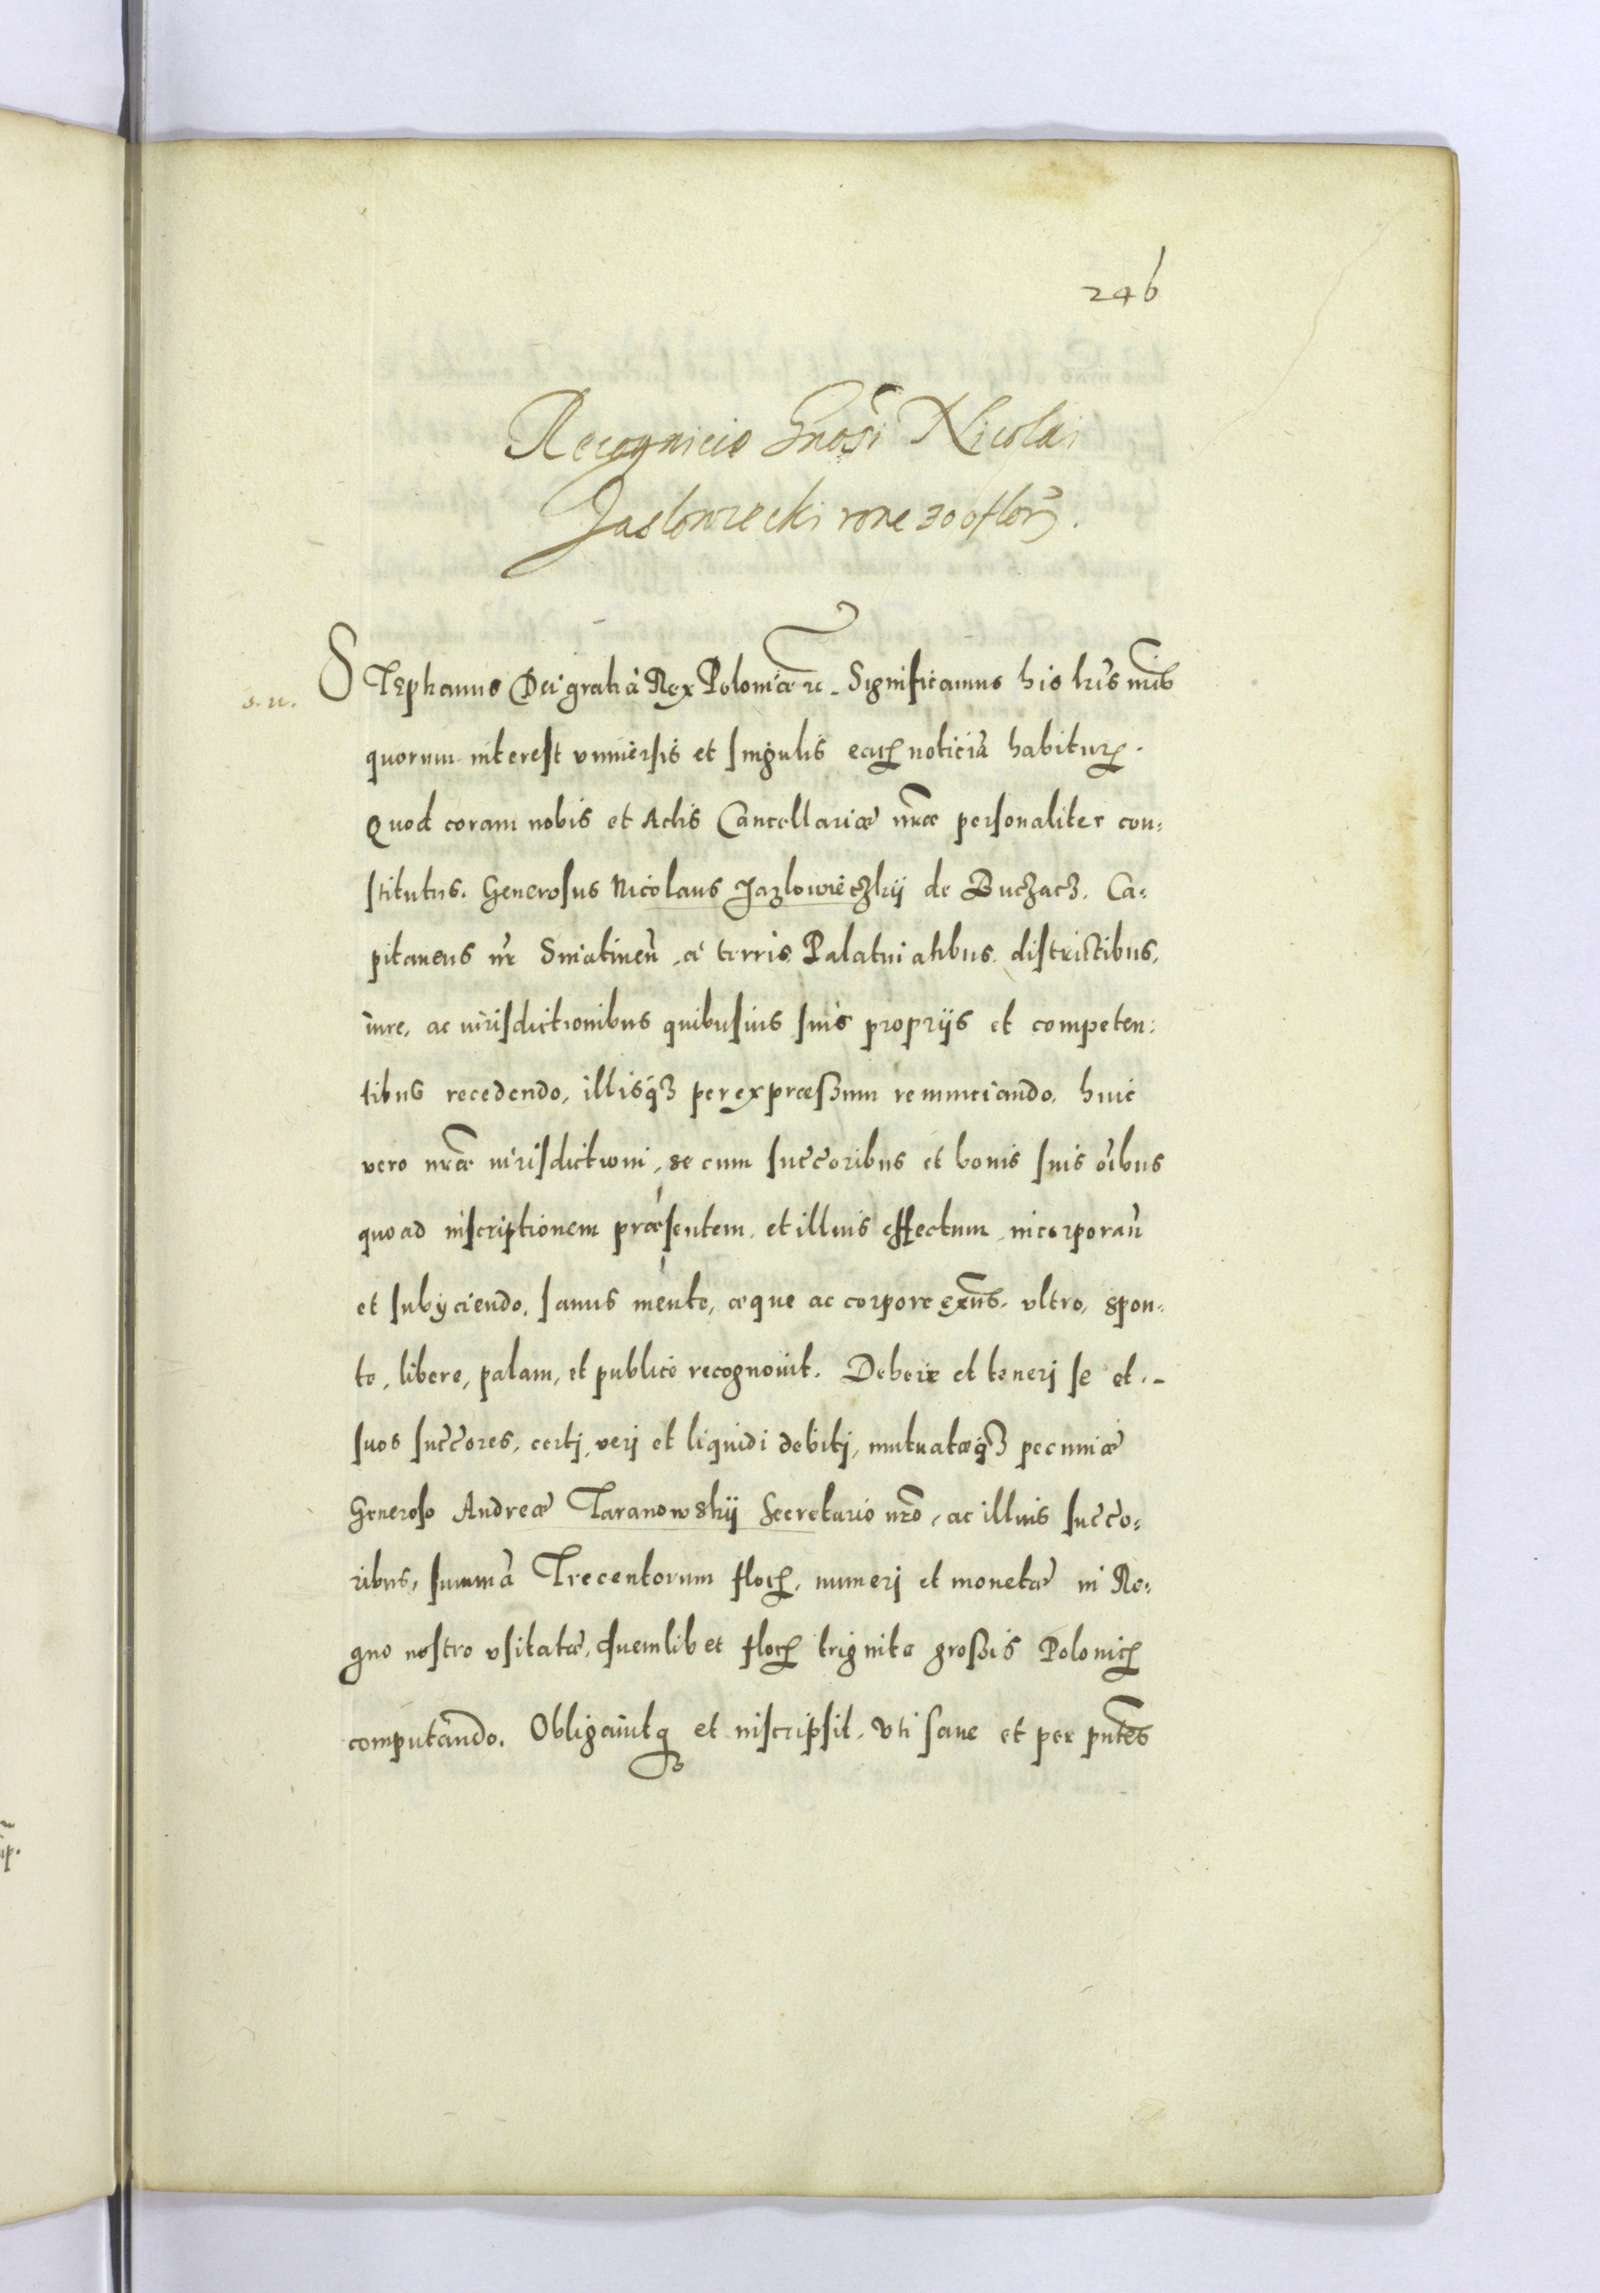 246
Recognicio Gnosi Nicolai
Jaslowiecki rone 300 flor.
s. n.
STEphanus Dei gratia Rex Poloniæ etc. Significamus his lris nris
quorum interest vniversis et singulis earum noticiã habiturum.
Quod coram nobis et Actis Cancellariæ nræ personaliter con:
stitutus. Generosus Nicolaus Jazlowieczkij de Buczacz. Ca:
pitaneus nr Sniatinen̄, a terris Palatinatibus, districtibus,
iure, ac iurisdictionibus quibusuis suis proprijs et competen:
tibus recedendo, illisqȝ per expræssum renunciando, huic
vero nræ iurisdictioni, se cum succoribus et bonis suis oībus
quoad inscriptionem præsentem, et illius effectum, incorporan̄
et subijciendo, sanus mente, æque ac corpore exñs, vltro, spon:
te, libere, palam, et publice recognovit. Debere et tenerj se et
suos succores, certj, verj et liquidi debitj, mutuatæqȝ pecuniæ
Generoso Andreæ Taranowskij Secretario nro, ac illius succo:
ribus, summã Trecentorum florum, numerj et monetæ in Re:
gno nostro vsitatæ, quemlibet florum triginta grossis Polonicum
computando. Obligavitqȝ et inscripsit, vti sane et per pntes